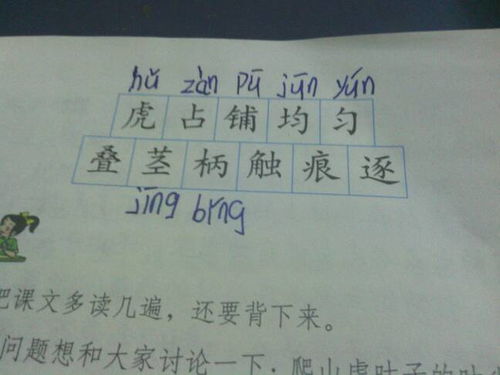 hǔ zàn pū jūn yún
虎占铺均匀
叠茎柄触痕逐
jīng bǐng
把课文多读几遍，还要背下来。
问题想和大家讨论一下：爬山虎叶子的叶